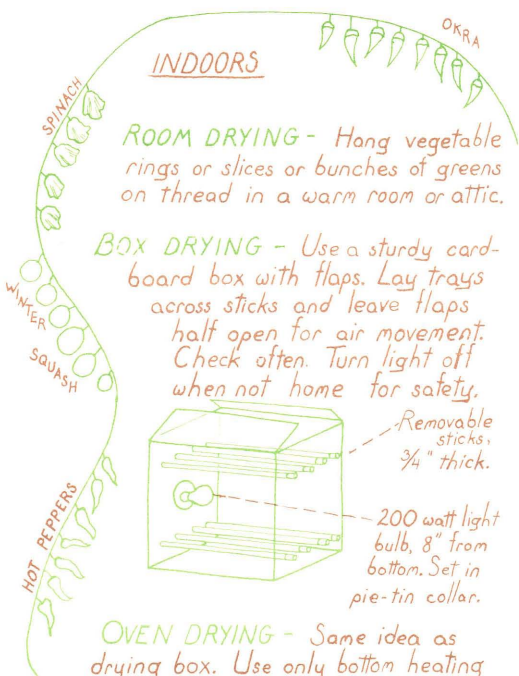 OKRA
INDOORS
SPINACH
ROOM DRYING - Hang vegetable
rings or slices or bunches of greens
on thread in a warm room or attic.
BOX DRYING - Use a sturdy card-
board box with flaps. Lay trays
across sticks and leave flaps
half open for air movement.
Check often. Turn light off
when not home for safety.
WINTER
SQUASH
Removable
sticks,
3/4" thick.
HOT PEPPERS
200 watt light
bulb, 8" from
bottom. Set in
pie-tin collar.
OVEN DRYING - Same idea as
drying box. Use only bottom heating